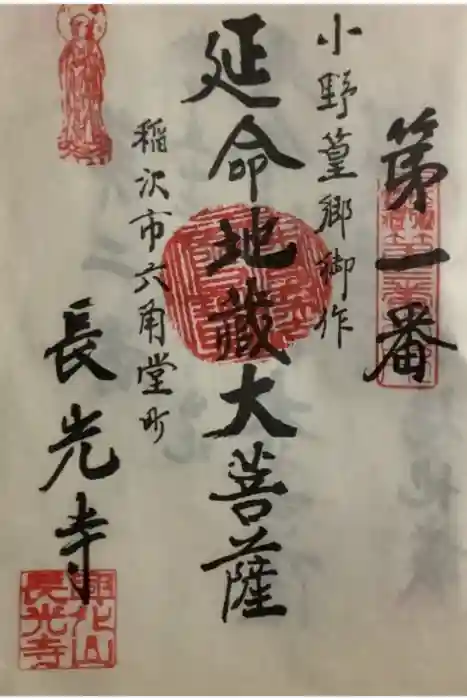 第一番
小野篁郷御作
延命地蔵大菩薩
稲沢市六角堂町
長光寺
興化山
長光寺